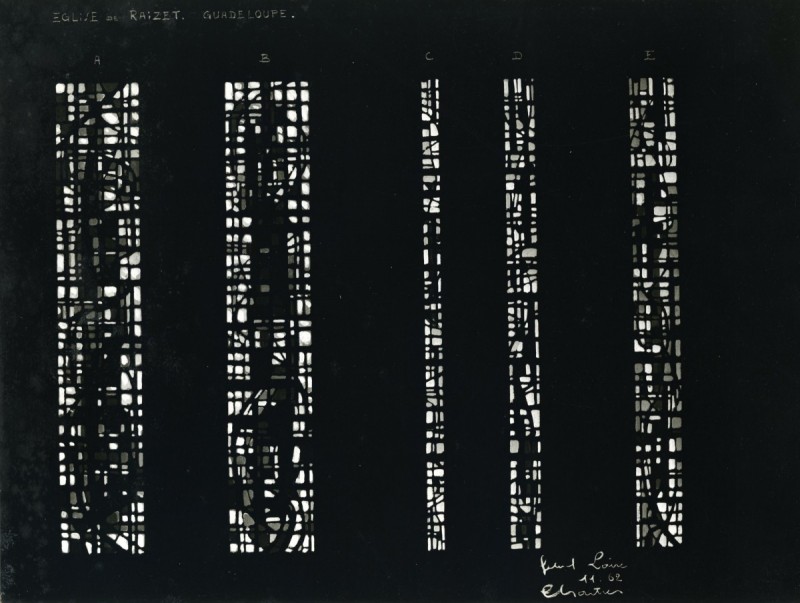 EGLISE DE RAIZET. GUADELOUPE.
A B C D E
Gabriel Loire
11.62
Chartres